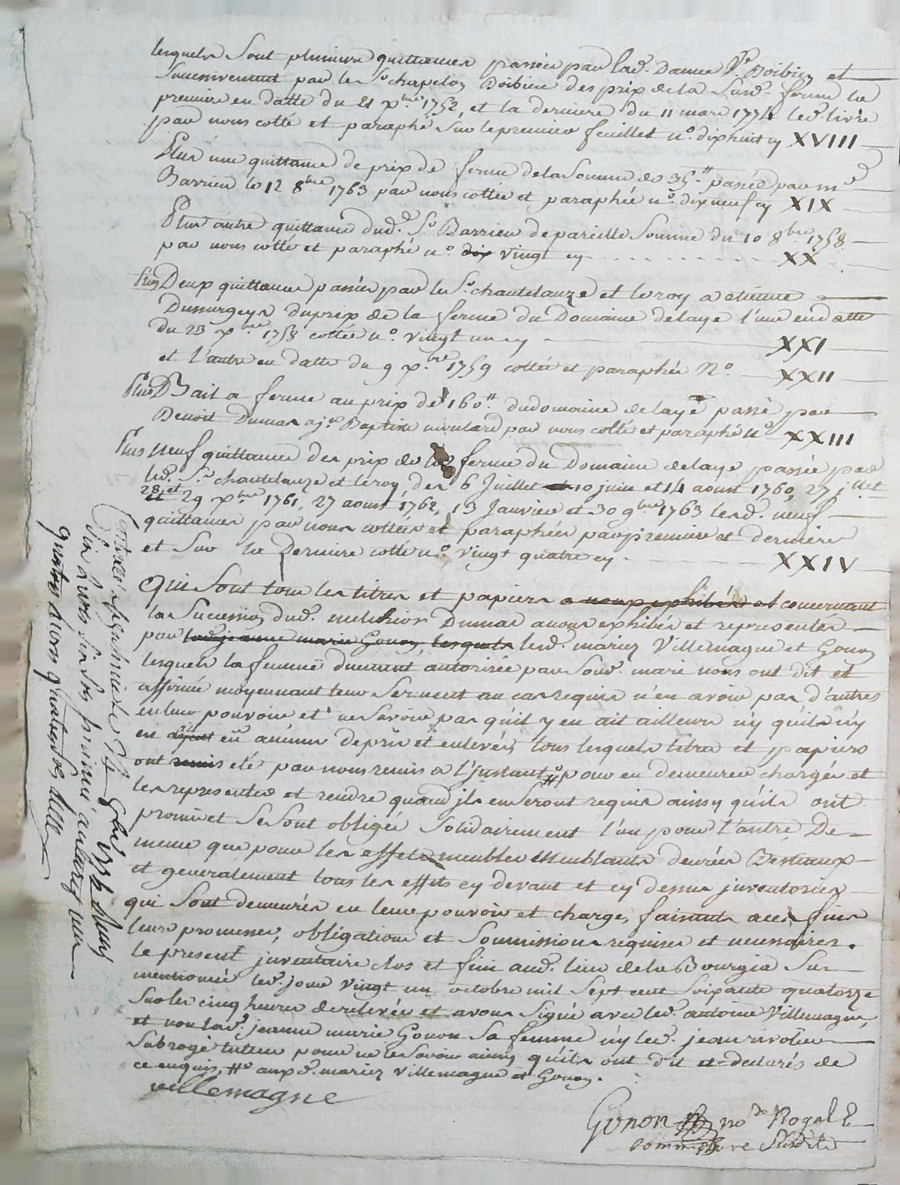 lesquels sont plusieurs quittances passées par lad. Dame Ve Boibieu et
successivement par le Sr chapelon Boibieu des prix de la susd. ferme la
premiere en datte du 21 xbre 1752, et la derniere du 11 mars 1774 led. livre
par nous cotté et paraphé sur le premier feuillet no. dixhuit cy XVIII
Plus une quittance de prix de ferme de la somme de 35 ₶ passée par me
Barrieu le 12 8bre 1763 par nous cottée et paraphée no. dix neuf cy XIX
Plus autre quittance dud. Sr Barrieu de pareille somme du 10 8bre 1758
par nous cotté et paraphé no. dix vingt cy XX
Plus Deux quittances passées par les Srs chantelauze et leroy a etienne
Dumurgey du prix de la ferme du Domaine delaye l'une en datte
du 23 xbre 1758 cottée no. vingt un cy XXI
et l'autre en datte du 9 xbre 1759 cottée et paraphée No. XXII
Plus Bail a ferme au prix de 160 ₶ du domaine delaye passé par
Benoit Dumas a je. Baptiste par nous cotté et paraphé no XXIII
Plus neuf quittances des prix de ferme du Domaine delaye passée par
les. Srs chantelauze et leroy des 6 Juillet 10 juin et 14 aoust 1760, 27 jllet
28 et 29 xbre 1761, 27 aoust 1762, 13 Janvier et 30 9bre 1763 lesd. neuf
quittances par nous cottées et paraphées par premiere et derniere
et sur la Derniere cotté no. vingt quatre cy XXIV
Qui sont tous les titres et papiers a nous exhibés et concernant
la succession dud. melchior Dumas a nous exhibés et representés
par lad. jeanne marie Gonon, lesquels lesd. mariez Villemagne et Gonon
lesquels la femme duement autorisée par sond. mari nous ont dit et
affirmé moyennant leur serment au cas requis n'en avoir pas d'autres
en leur pouvoir et ne savoir pas qu'il y en ait ailleurs ny qu'ils n'y
en ait eu aucuns de pris et enlevés, tous lesquels titres et papiers
ont remis eté par nous remis a l'instant # pour en demeurer chargés et
les representer et rendre quand ils en seront requis ainsy qu'ils ont
promis et se sont obligés solidairement l'un pour l'autre De
meme que pour les effets meubles meublants denrées Bestiaux
et generalement tous les effets cy devant et cy dessus inventoriés
qui sont demeurés en leur pouvoir et charge, faisants a ces fins
leurs promesses, obligations et soumissions requises et necessaires.
le present inventaire clos et fini aud. lieu de la Bourgia sus
mentionné led. jour vingt un octobre mil sept cent soixante quatorze
sur les cinq heures de relevée et avons signé avec led. antoine Villemagne,
et non lad. jeanne marie Gonon sa femme n'y led. jean rivolier
subrogé tuteur pour ne le savoir ainsy qu'ils ont dit et declarés de
ce enquis, # auxd. mariez Villemagne et Gonon.
villemagne
Gonon no re Rogal &
commissaire Susdit
Controllé 24 8bre 1774
six livres dix sols
quatre livres quatorze sols